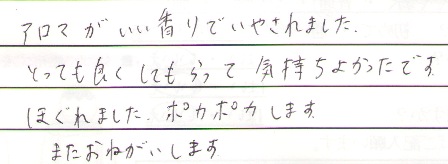 アロマがいい香りでいやされました.
とっても良くしてもらって 気持ちよかったです
ほぐれました. ポカポカします
またおねがいします